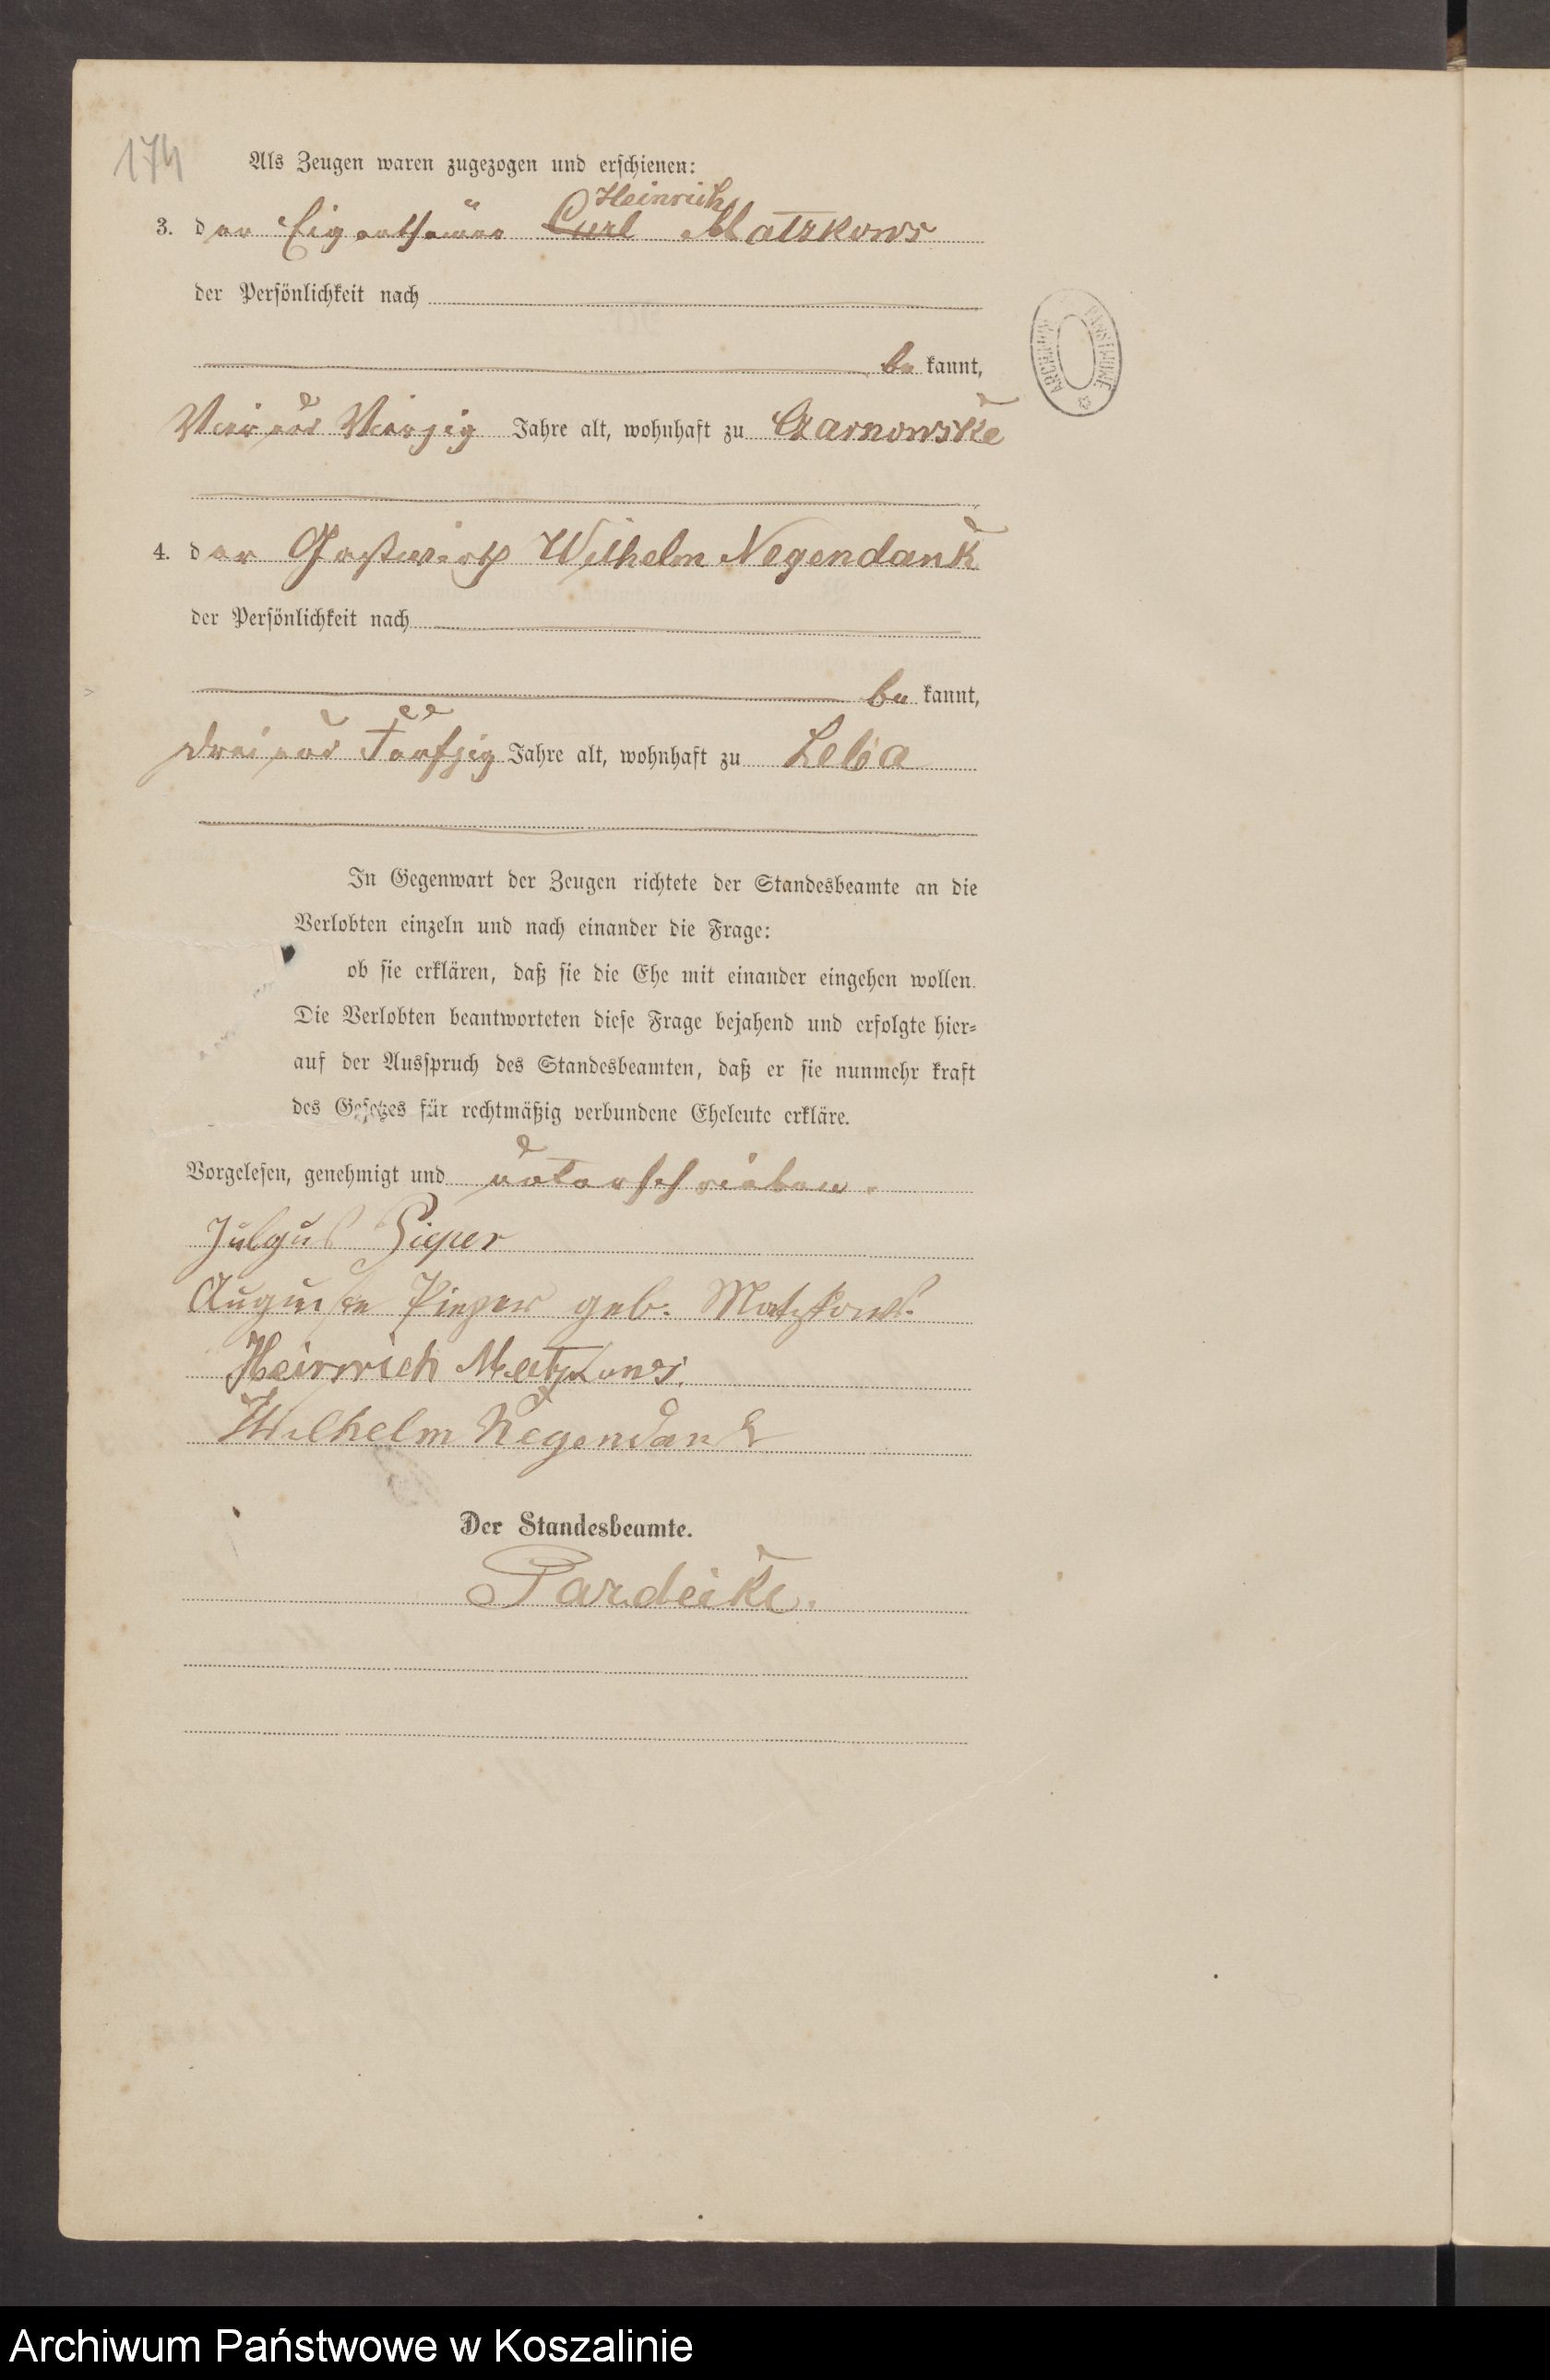 174
Als Zeugen waren zugezogen und erschienen:
Heinrich
3. der Eigenthümer Carl Matzkows
der Persönlichkeit nach
be kannt,
Vier und Vierzig Jahre alt, wohnhaft zu Czarnowske
4. der Gastwirth Wilhelm Negendank
der Persönlichkeit nach
be kannt,
drei und Funfzig Jahre alt, wohnhaft zu Leba
In Gegenwart der Zeugen richtete der Standesbeamte an die
Verlobten einzeln und nach einander die Frage:
ob sie erklären, daß sie die Ehe mit einander eingehen wollen.
Die Verlobten beantworteten diese Frage bejahend und erfolgte hier=
auf der Ausspruch des Standesbeamten, daß er sie nunmehr kraft
des Gesetzes für rechtmäßig verbundene Eheleute erkläre.
Vorgelesen, genehmigt und unterschrieben.
Pieper
Auguste Pieper geb. Matzkows.
Heinrich Matzkows.
Wilhelm Negendank
Der Standesbeamte.
Pardeike.
ARCHIWUM PAŃSTWOWE
Archiwum Państwowe w Koszalinie